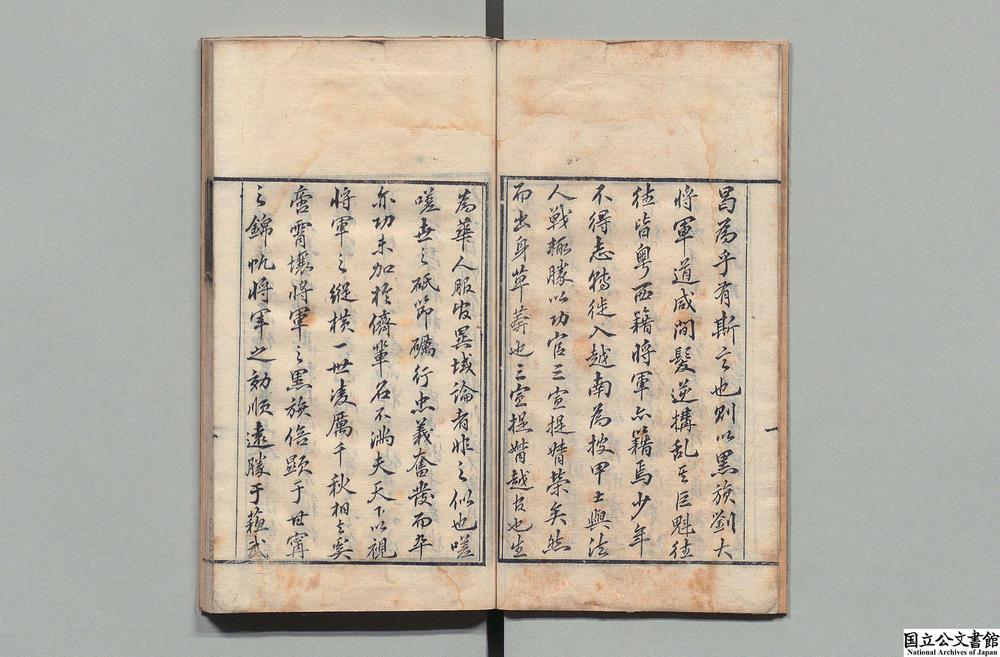 昌為乎有斯言也則以黑旗劉大
將軍道咸間髮逆構乱其巨魁往
往皆粤西籍將軍亦籍焉少年
不得志轉徙入越南為披甲士與法
人戰極勝以功官三宣提督榮矣然
而出身草莽也三宣提督越官也生
為華人服官異域論者非之似也嗟
嗟世之砥節礪行忠義奮發而卒
亦功未加於儕輩名不滿夫天下以視
將軍之縱橫一世凌厲千秋相去奚
啻霄壤將軍之黑旗倍顯于甘寧
之錦帆將軍之効順遠勝于蘓武
国立公文書館
National Archives of Japan